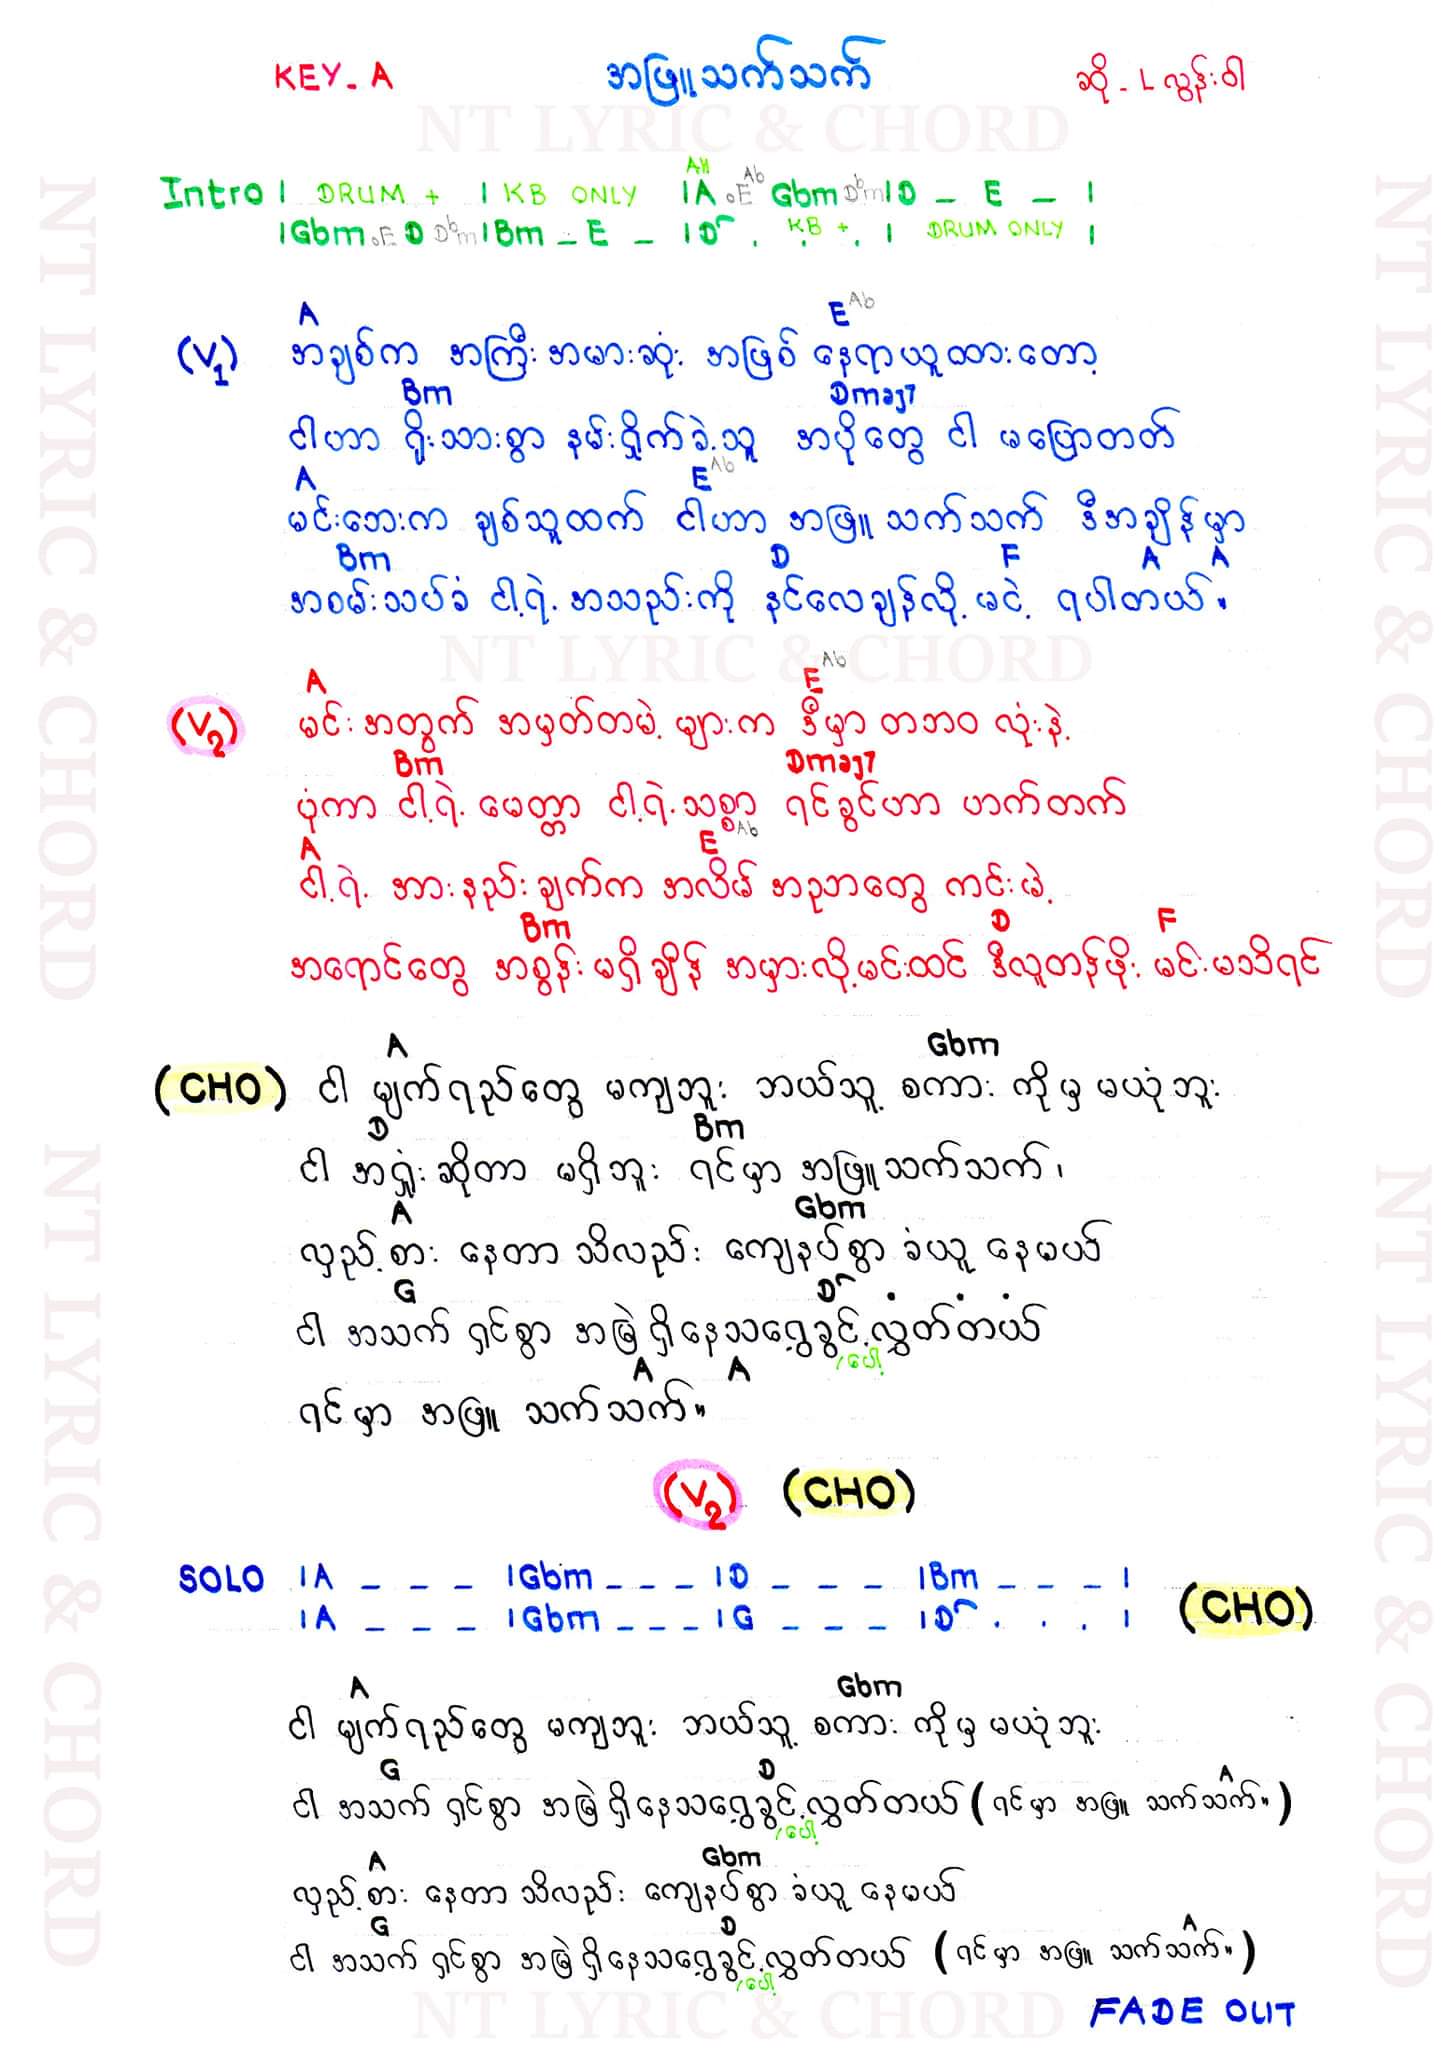 KEY - A အဖြူသက်သက် ဆို - L လွန်းဝါ
NT LYRIC & CHORD
All Ab
Intro | DRUM + | KB ONLY |A .E Gbm Dbm |D _ E _ |
|Gbm .E D Dbm |Bm _ E _ |D . KB + . | DRUM ONLY |
A E Ab
(V1) အချစ်က အကြီးအမားဆုံး အဖြစ် နေရာယူထားတော့
Bm Dmaj7
ငါဟာ ရိုးသားစွာ နမ်းရှိုက်ခဲ့သူ အပိုတွေ ငါ မပြောတတ်
A E Ab
မင်းဘေးက ချစ်သူထက် ငါဟာ အဖြူ သက်သက် ဒီအချိန်မှာ
Bm D F A A
အစမ်းသပ်ခံ ငါ့ရဲ့ အသည်းကို နင်လေချန်လို့ မငဲ့ ရပါတယ်။
NT LYRIC & CHORD
A E Ab
(V2) မင်းအတွက် အမှတ်တမဲ့ များက ဒီမှာ တဘဝ လုံးနဲ့
Bm Dmaj7
ပုံကာ ငါ့ရဲ့ မေတ္တာ ငါ့ရဲ့သစ္စာ ရင်ခွင်ဟာ ဟက်တက်
A E Ab
ငါ့ရဲ့ အားနည်းချက်က အလိမ် အညာတွေ ကင်းမဲ့
Bm D F
အရောင်တွေ အစွန်းမရှိချိန် အမှားလို့မင်းထင် ဒီလူတန်ဖိုး မင်းမသိရင်
A Gbm
(CHO) ငါ မျက်ရည်တွေ မကျဘူး ဘယ်သူ့ စကား ကိုမှ မယုံဘူး
D Bm
ငါ အရှုံးဆိုတာ မရှိဘူး ရင်မှာ အဖြူသက်သက်၊
A Gbm
လှည့်စား နေတာ သိလည်း ကျေနပ်စွာ ခံယူ နေမယ်
G D . . .
ငါ အသက် ရှင်စွာ အမြဲရှိနေသရွေ့ခွင့်လွှတ်တယ်
/ပေါ့
A A
ရင်မှာ အဖြူ သက်သက်။
(V2) (CHO)
SOLO |A _ _ _ |Gbm _ _ _ |D _ _ _ |Bm _ _ _ |
|A _ _ _ |Gbm _ _ _ |G _ _ _ |D . . . | (CHO)
A Gbm
ငါ မျက်ရည်တွေ မကျဘူး ဘယ်သူ့ စကား ကိုမှ မယုံဘူး
G D A
ငါ အသက် ရှင်စွာ အမြဲရှိနေသရွေ့ခွင့်လွှတ်တယ် (ရင်မှာ အဖြူ သက်သက်။)
/ပေါ့
A Gbm
လှည့်စား နေတာ သိလည်း ကျေနပ်စွာ ခံယူ နေမယ်
G D A
ငါ အသက် ရှင်စွာ အမြဲရှိနေသရွေ့ခွင့်လွှတ်တယ် (ရင်မှာ အဖြူ သက်သက်။)
/ပေါ့
NT LYRIC & CHORD
FADE OUT
NT LYRIC & CHORD
NT LYRIC & CHORD
NT LYRIC & CHORD
NT LYRIC & CHORD